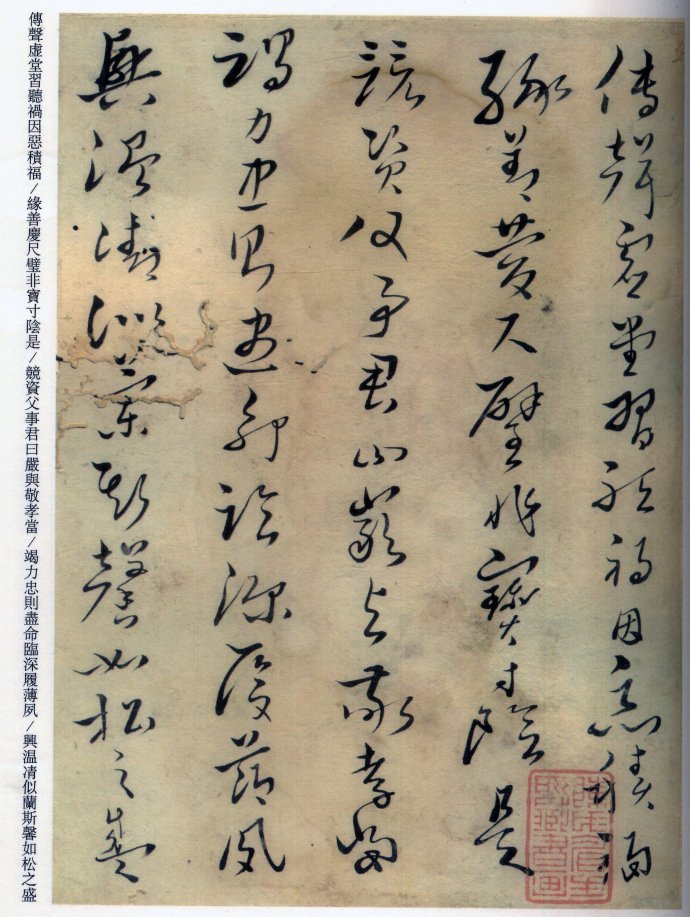 傳聲虛堂習聽禍因惡積福
緣善慶尺璧非寶寸陰是
競資父事君曰嚴與敬孝當
竭力忠則盡命臨深履薄夙
興温凊似蘭斯馨如松之盛
傳聲虛堂習聽禍因惡積福/緣善慶尺璧非寶寸陰是/競資父事君曰嚴與敬孝當/竭力忠則盡命臨深履薄夙/興温凊似蘭斯馨如松之盛